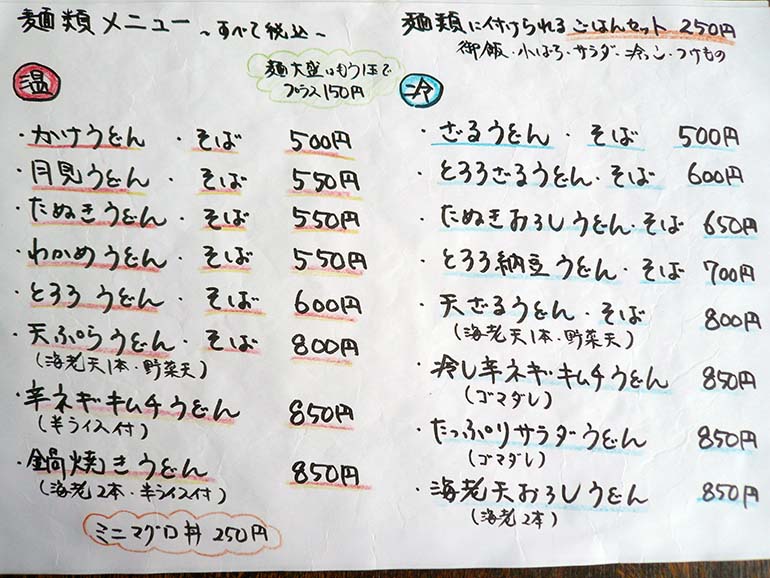 麺類メニュー ～すべて税込～
麺大盛はもう1玉で
プラス150円
温
・かけうどん ・そば 500円
・月見うどん ・そば 550円
・たぬきうどん ・そば 550円
・わかめうどん ・そば 550円
・とろろうどん ・そば 600円
・天ぷらうどん ・そば 800円
(海老天1本・野菜天)
・辛ネギキムチうどん 850円
(半ライス付)
・鍋焼きうどん 850円
(海老2本・半ライス付)
ミニマグロ丼 250円
麺類に付けられるごはんセット 250円
御飯・小ばち・サラダ・冷っこ・つけもの
冷
・ざるうどん ・そば 500円
・とろろざるうどん・そば 600円
・たぬきおろしうどん・そば 650円
・とろろ納豆うどん・そば 700円
・天ざるうどん・そば 800円
(海老天1本・野菜天)
・冷し辛ネギキムチうどん 850円
(ゴマダレ)
・たっぷりサラダうどん 850円
(ゴマダレ)
・海老天おろしうどん 850円
(海老2本)